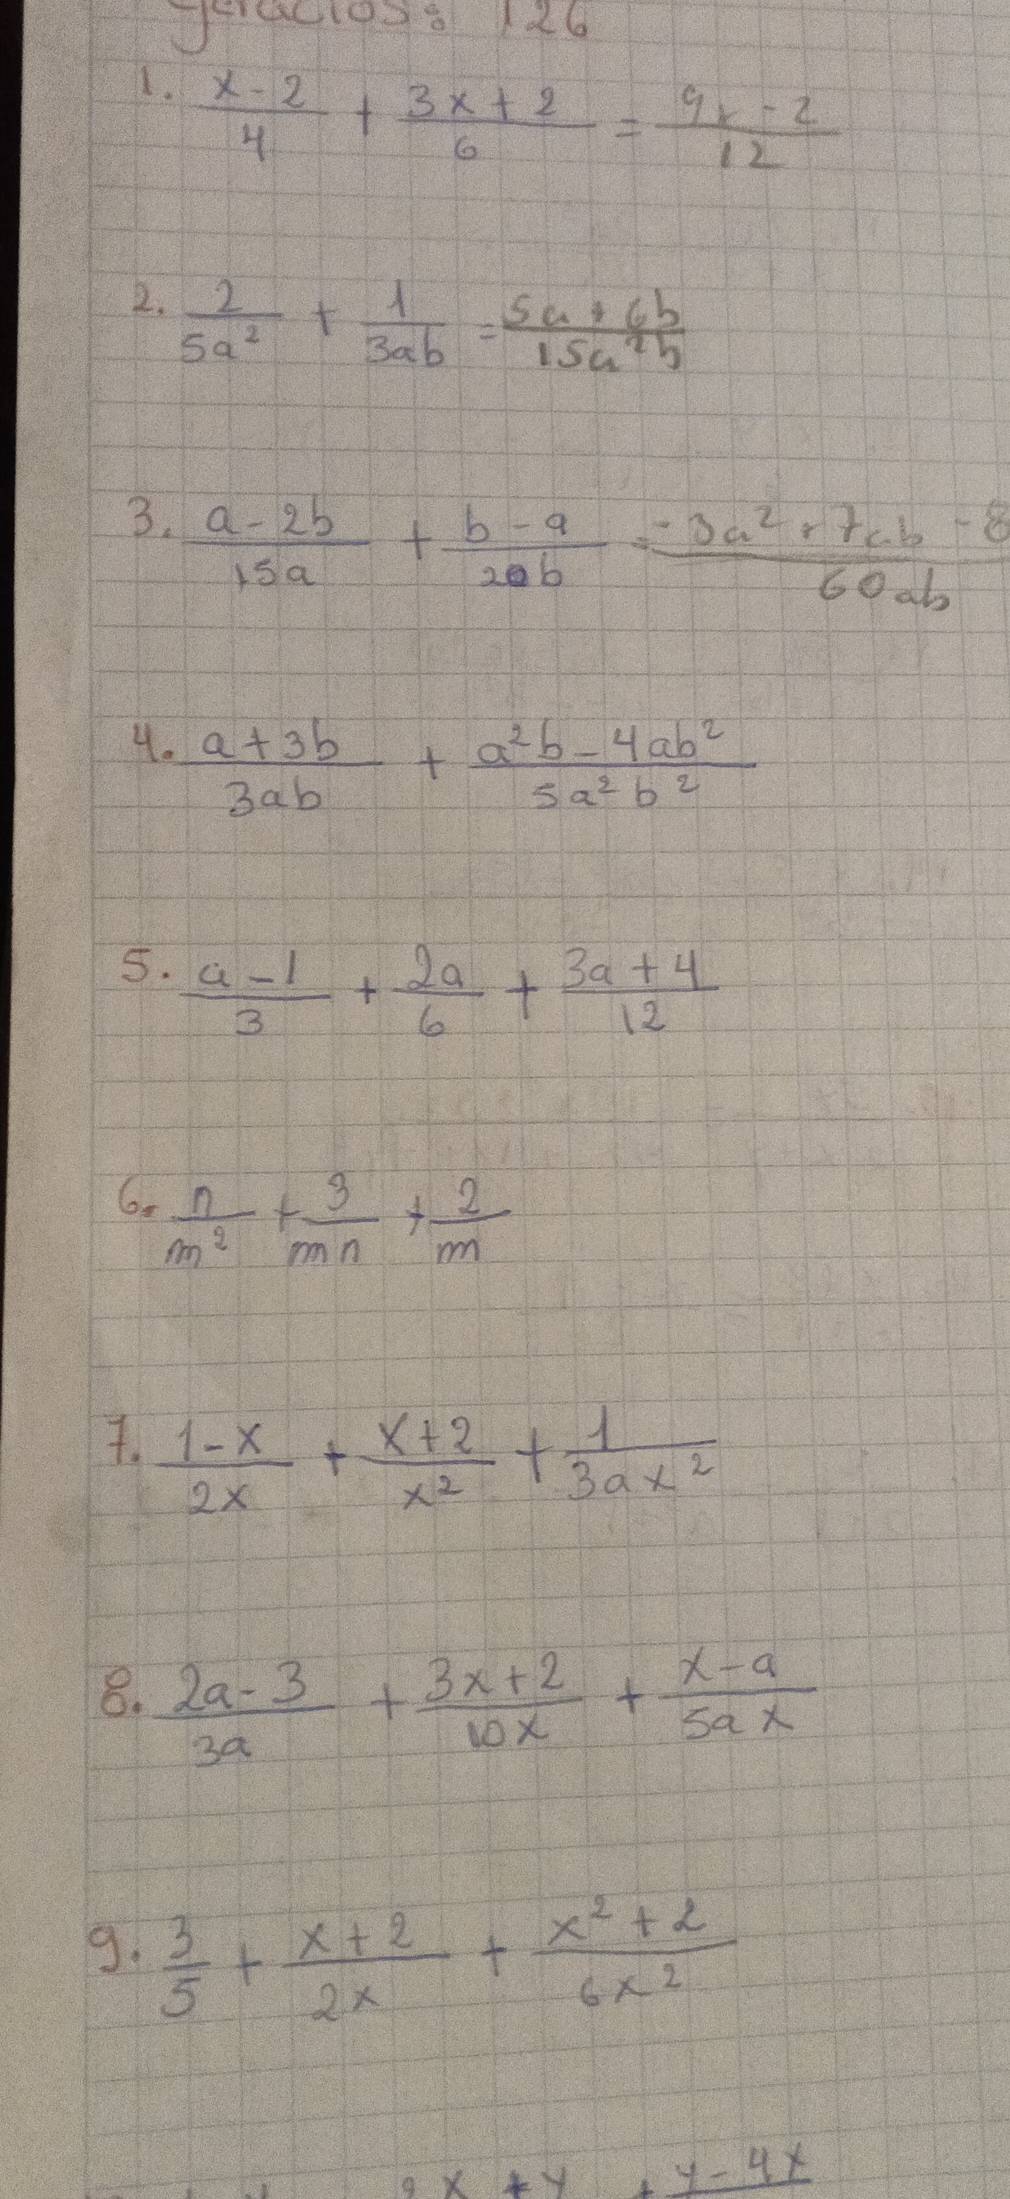 126
1. x-2/4 + 3x+2/6 = 9x-2/12
2. 2/5a² + 1/3ab = 5a+6b/15a²b
3. a-2b/15a + b-a/20b = -3a²+7ab-8/60ab
4. a+3b/3ab + a²b-4ab²/5a²b²
5. a-1/3 + 2a/6 + 3a+4/12
6. n/m² + 3/mn + 2/m
7. 1-x/2x + x+2/x² + 1/3ax²
8. 2a-3/3a + 3x+2/10x + x-a/5ax
9. 3/5 + x+2/2x + x²+2/6x²
x+y + y-4x